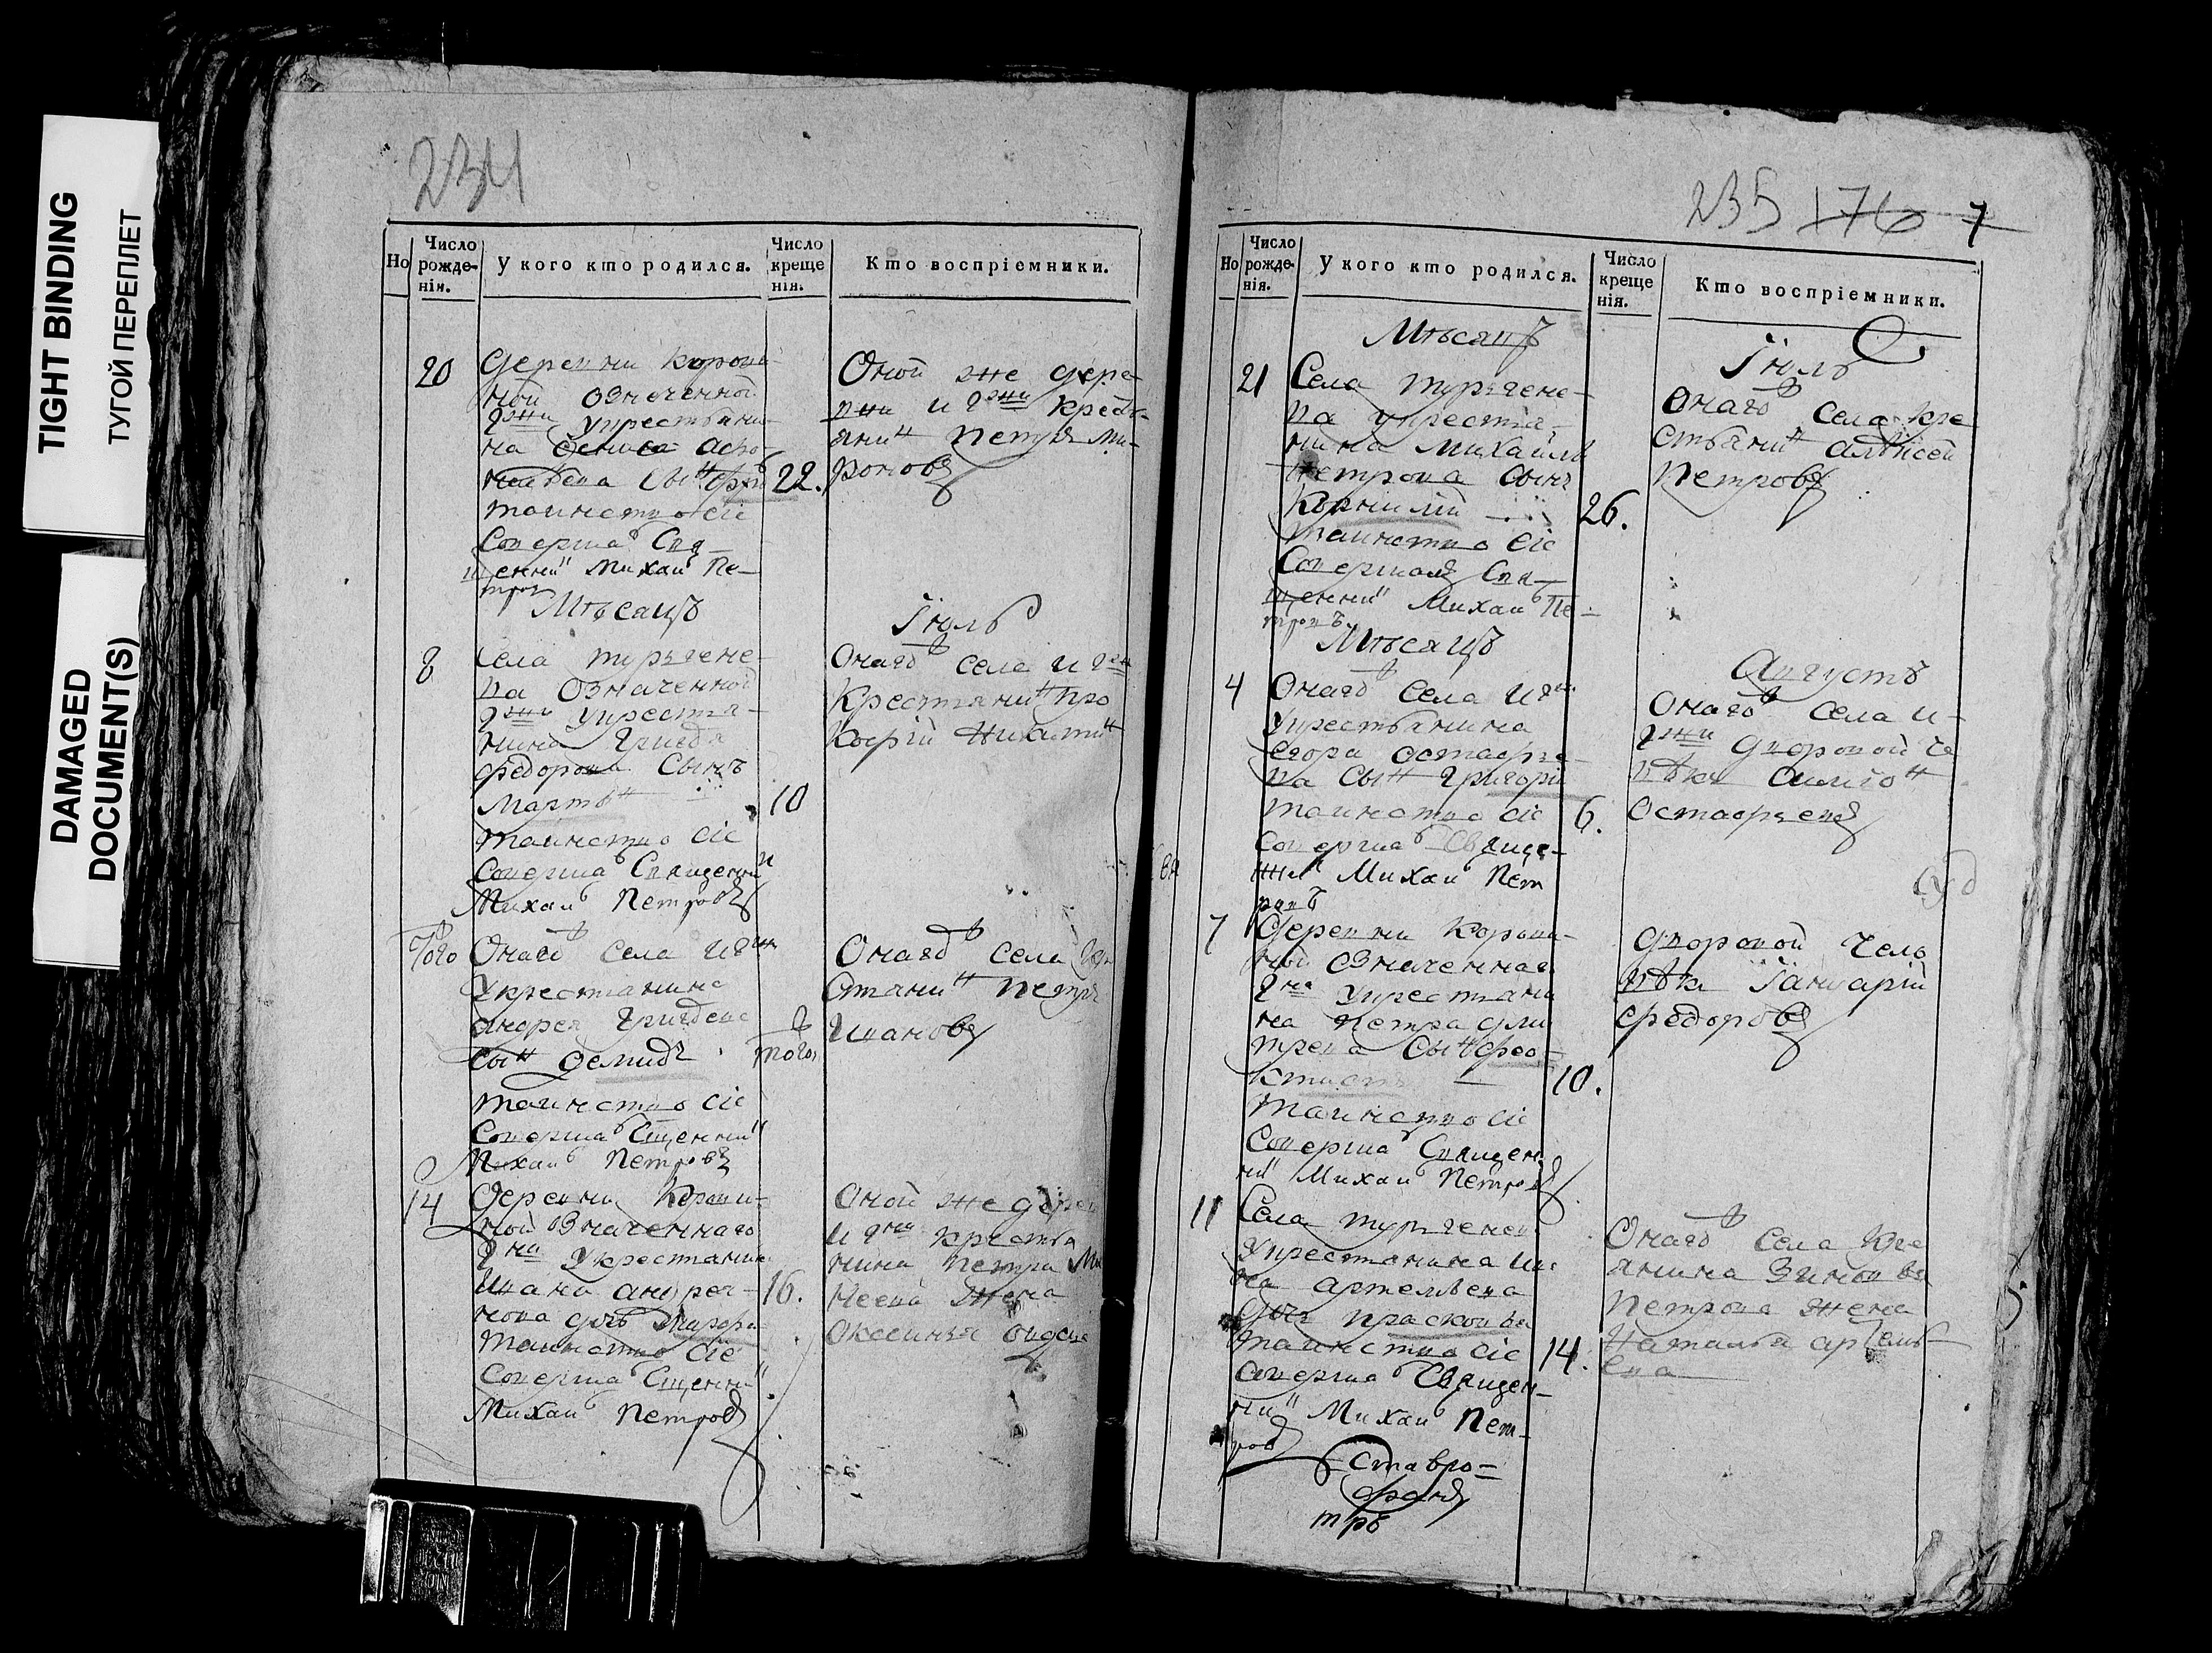 TIGHT BINDING
ТУГОЙ ПЕРЕПЛЕТ
DAMAGED
DOCUMENT(S)
234
Но
Число рожденія.
У кого кто родился.
Число крещенія.
Кто воспріемники.
20
Деревни
ной означенной
гжи укрестьяни-
на
Сынъ
22.
таинство сіе
Соверша Свя-
щенни Михаи Пе-
тров
Мѣсяцъ
Оной же дере
вни и гжи кресть-
янинъ Петръ Ми-
роновъ
Іюль
8
Села Тургене-
ва Означенной
гжи укрестья-
нина Григорія
Федорова Сынъ
Мартынъ
10
таинство сіе
Соверша Священни
Михаи Петровъ
Онаго села и гжи
Крестянинъ Про
кофій Никитин
Того
Онаго села и гжи
укрестянина
Андрея
Сын Демидъ
того
таинство сіе
Соверша Сщенни
Михаи Петровъ
Онаго села
стянин Петръ
Ивановъ
14
Деревни
ной Означеннаго
гжи укрестянина
Ивана Андреа-
нова дочь
16.
таинство сіе
Соверша Сщенни
Михаи Петровъ
Оной же дерев
и гжи крестья
нина Петра Ми
неева жена
Аксинья
235 176 7
Но
Число рожденія.
У кого кто родился.
Число крещенія.
Кто воспріемники.
Мѣсяцъ
Іюль
21
Села Тургене-
ва укрестья-
нина Михаила
Петрова Сынъ
Корнилій
26.
таинство сіе
Совершалъ Свя-
щенни Михаи Пе-
тровъ
Онаго села кре
стьянин Алексей
Петровъ
Мѣсяцъ
Августъ
4
Онаго села и гжи
укрестьянина
Егора Остафье-
ва Сын Григорій
6.
таинство сіе
Соверша Свяще-
нни Михаи Пет
ровъ
Онаго села и
гжи дворовой че
ловѣкъ
Остафьевъ
7
Деревни
ной означенная
гжи укрестяни
на Петра Дми
трева Сын Фео-
ктистъ
10.
таинство сіе
Соверша Священ
ни Михаи Петровъ
Дворовой чело
вѣкъ Іануарій
Федоровъ
11
Села Тургенев
укрестянина Ива
на Артемьева
дочь Прасковья
14.
таинство сіе
Соверша Священ-
ни Михаи Пет-
ровъ
Онаго села кре
янина Зиновья
Петрова жена
Наталья Артемь
ева
Ставро-